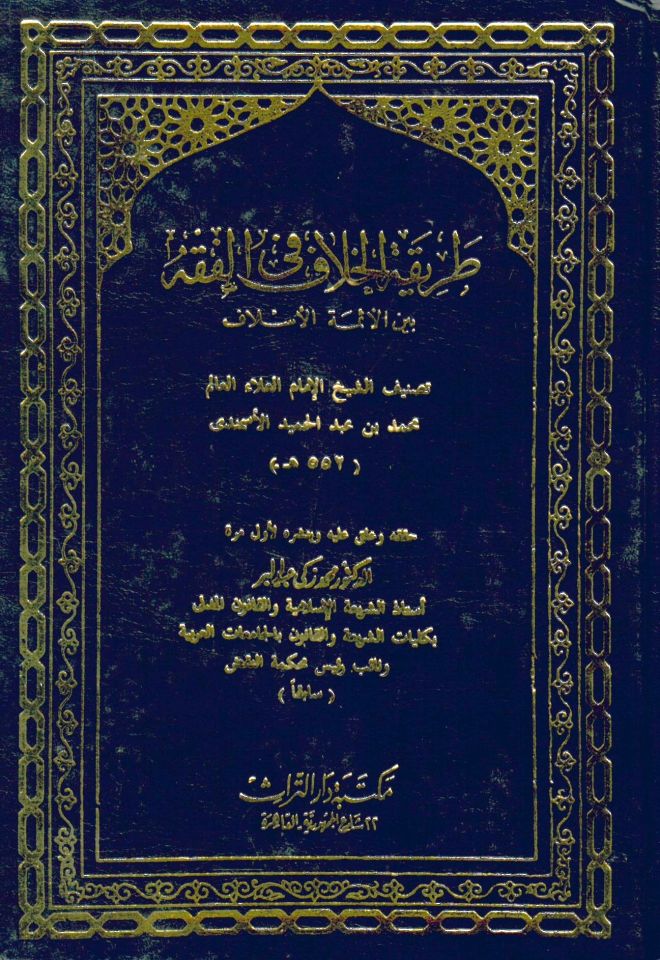 طريقة الخلاف في الفقه
بين الأئمة الأسلاف
تصنيف الشيخ الإمام العلاء العالم
محمد بن عبد الحميد الأسمندى
( ٥٥٢ هـ )
حققه وعلق عليه وينشره لأول مرة
الدكتور محمد زكى عبد البر
أستاذ الشريعة الإسلامية والقانون المدنى
بكليات الشريعة والقانون بالجامعات العربية
ونائب رئيس محكمة النقض
( سابقاً )
مكتبة دار التراث
٢٢ شارع الجمهورية القاهرة